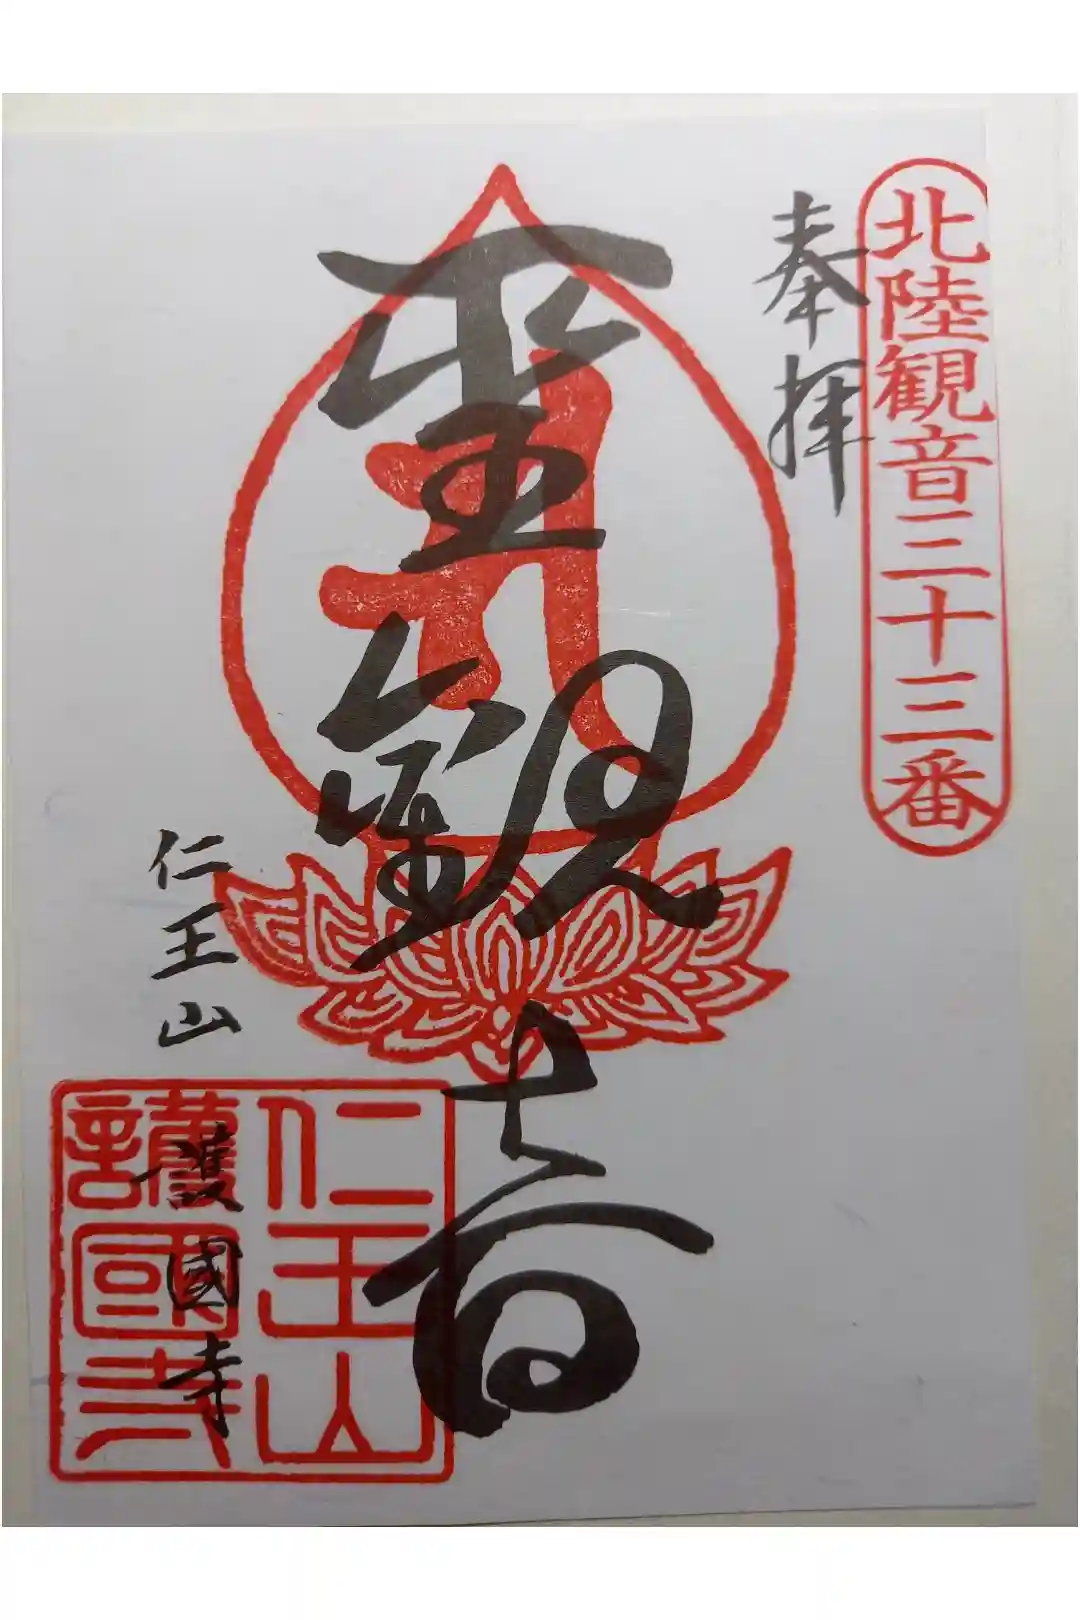 北陸観音三十三番
奉拝
聖觀音
仁王山
護國寺
仁王山
護國寺